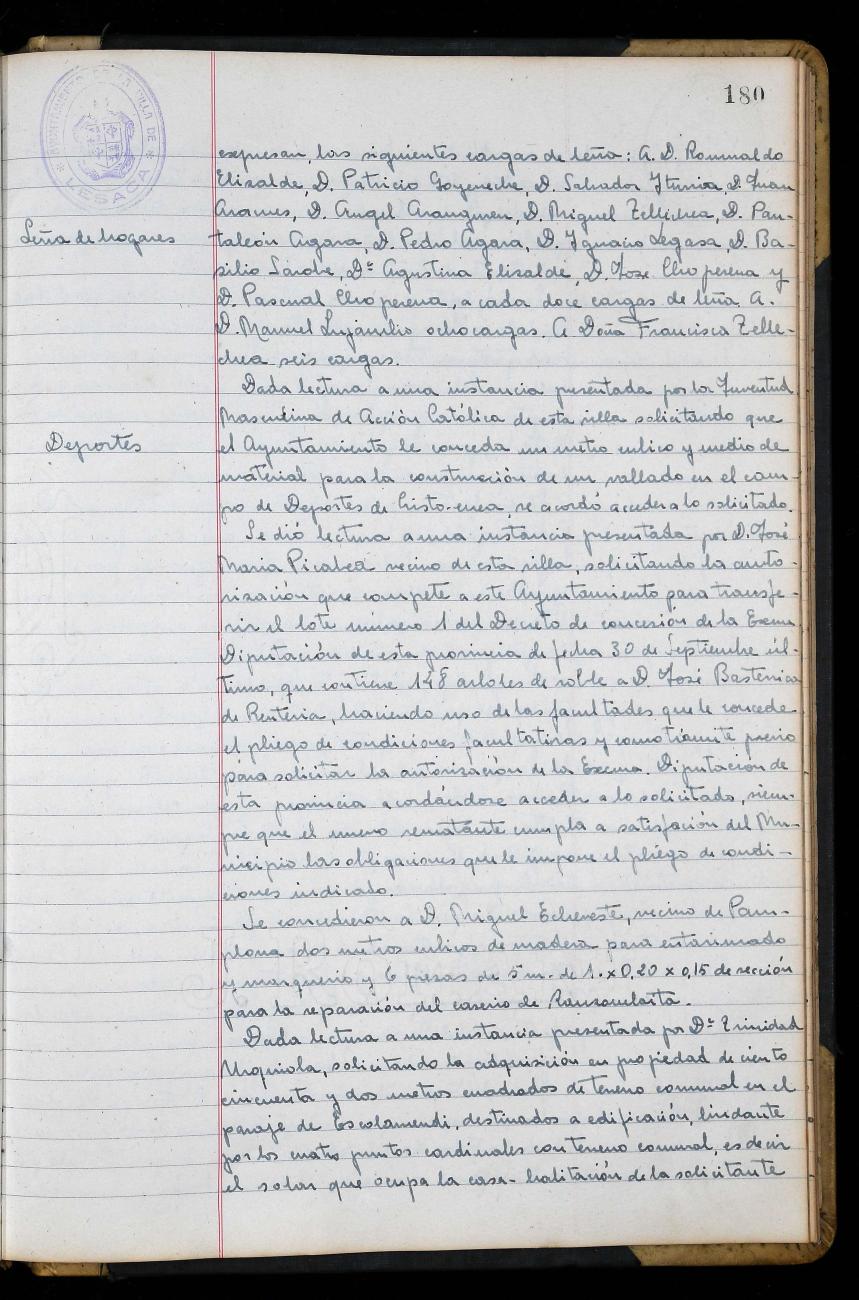 180
AYUNTAMIENTO DE LA VILLA DE
* LESACA *
expresan, las siguientes cargas de leña: A. D. Romualdo
Elizalde, D. Patricio Goyeneche, D. Salvador Yturria, D. Juan
Leña de hogares
D. Angel Aranguren, D. Miguel Tellechea, D. Pan-
taleón Agara, D. Pedro Agara, D. Ygnacio Legasa, D. Ba-
silio Sarobe, Dª Agustina Elizalde, D. Jose Choperena y
D. Pascual Choperena, a cada doce cargas de leña. A.
D. Manuel ocho cargas. A Doña Francisca Telle-
chea seis cargas.
Dada lectura a una instancia presentada por la Juventud
Masculina de Acción Católica de esta villa solicitando que
Deportes
el Ayuntamiento le conceda un metro cubico y medio de
material para la construcción de un vallado en el cam-
po de Deportes de Cristo-enea, se acordó acceder a lo solicitado.
Se dió lectura a una instancia presentada por D. José
Maria Picabea vecino de esta villa, solicitando la auto-
rización que compete a este Ayuntamiento para transfe-
rir el lote número 1 del Decreto de concesión de la Excma
Diputación de esta provincia de fecha 30 de Septiembre úl-
timo, que contiene 148 arboles de roble a D. José Basterrica
de Renteria, haciendo uso de las facultades que le concede
el pliego de condiciones facultativas y como trámite previo
para solicitar la autorización de la Excma. Diputación de
esta provincia acordándose acceder a lo solicitado, siem-
pre que el nuevo rematante cumpla a satisfación del Mu-
nicipio las obligaciones que le impone el pliego de condi-
ciones indicado.
Se concedieron a D. Miguel Echeveste, vecino de Pam-
plona dos metros cubicos de madera para entarimado
y marquerio y 6 piezas de 5 m. de 1. x 0,20 x 0,15 de sección
para la reparación del caserio de
Dada lectura a una instancia presentada por Dª Trinidad
Urquiola, solicitando la adquisición en propiedad de ciento
cincuenta y dos metros cuadrados de terreno comunal en el
paraje de Escolamendi, destinados a edificación, lindante
por los cuatro puntos cardinales con terreno comunal, es decir
el solar que ocupa la casa-habitación de la solicitante